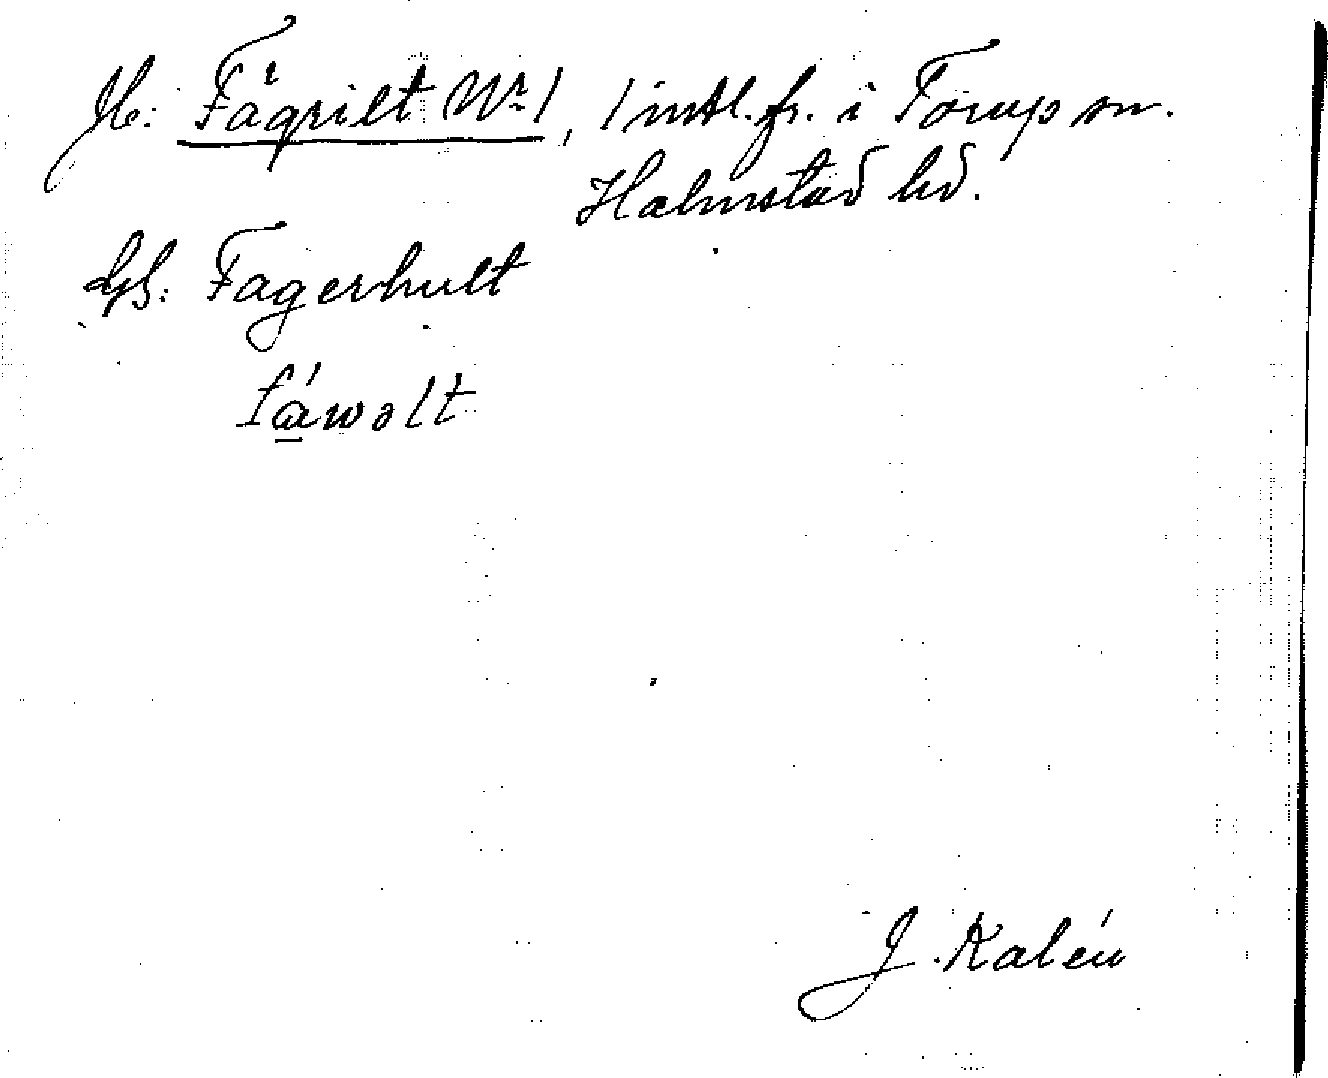 Jb: Fägrilt Nr 1, 1 mtl. fr. i Torup sn.
Halmstad hd.
Gs: Fagerhult
fáwəlt
J. Kalén